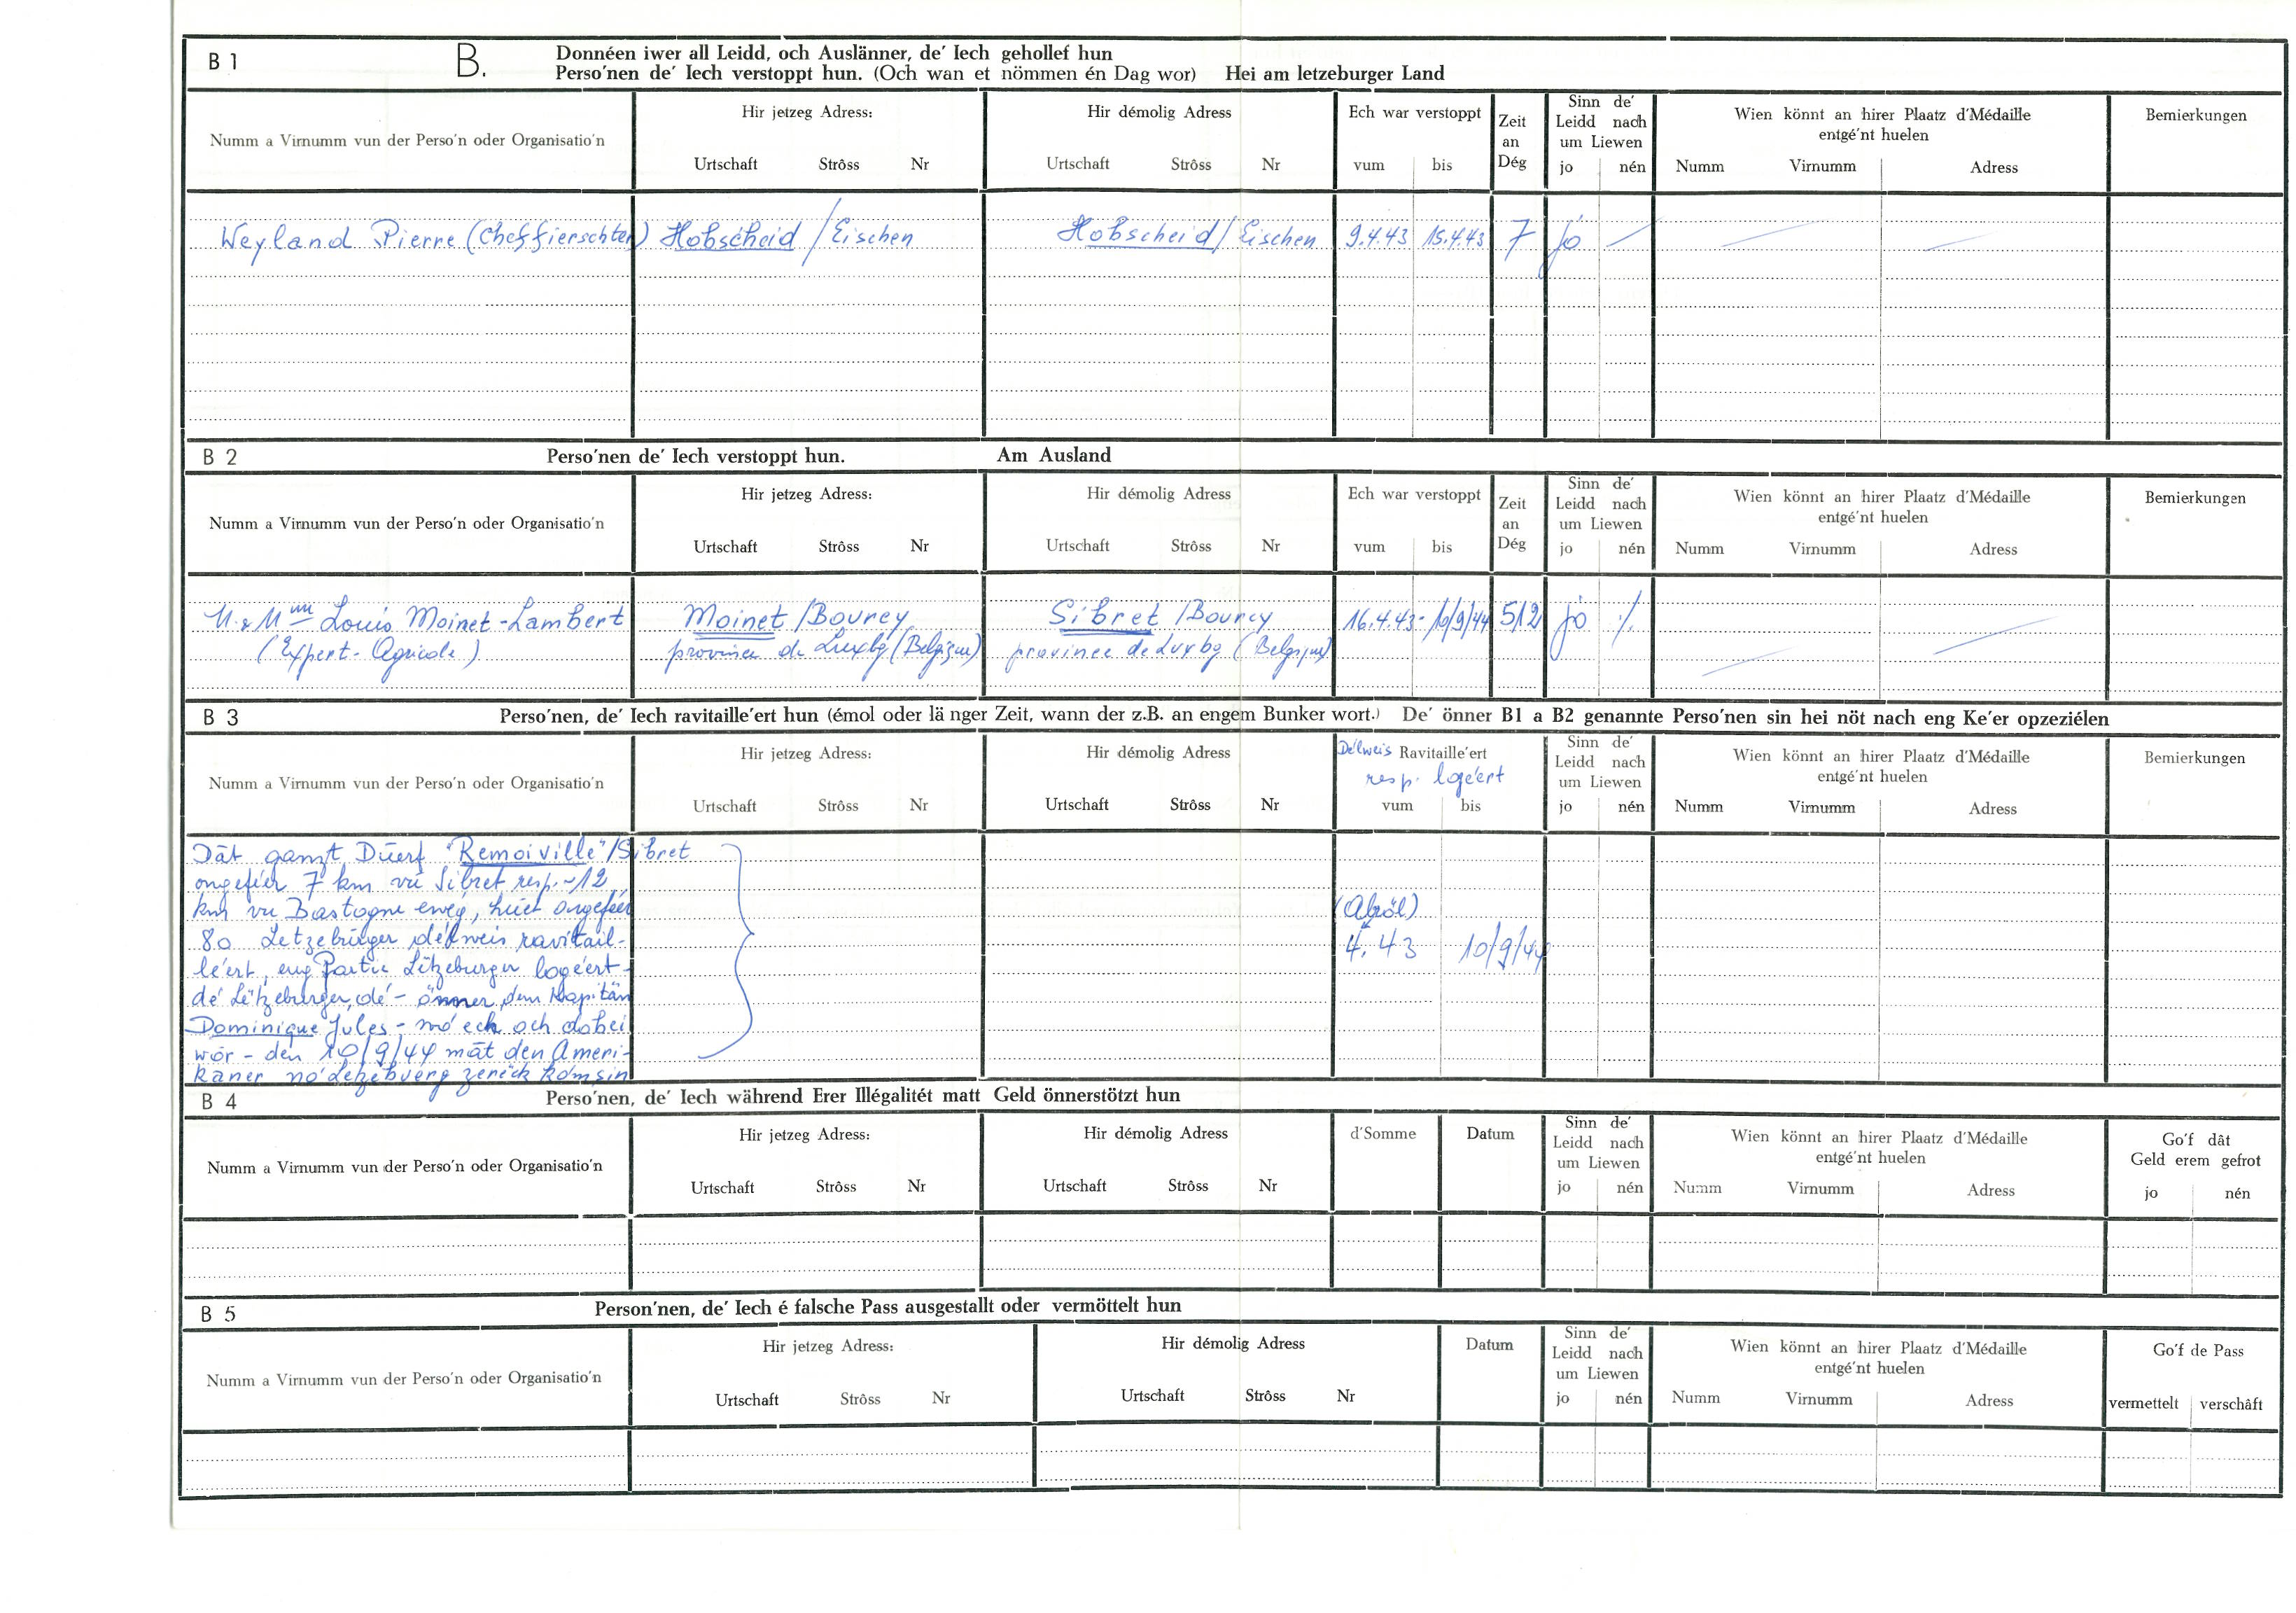 B 1
B.
Donnéen iwer all Leidd, och Auslänner, de' Iech gehollef hun
Perso'nen de' Iech verstoppt hun. (Och wan et nömmen én Dag wor) Hei am letzeburger Land
Numm a Virnumm vun der Perso'n oder Organisatio'n
Hir jetzeg Adress:
Urtschaft Strôss Nr
Hir démolig Adress
Urtschaft Strôss Nr
Ech war verstoppt
vum bis
Zeit
an
Dég
Sinn de'
Leidd nach
um Liewen
jo nén
Wien könnt an hirer Plaatz d'Médaille
entgé'nt huelen
Numm Virnumm Adress
Bemierkungen
Weyland Pierre (Cheffierschter) Hobscheid / Eischen Hobscheid / Eischen 9.4.43 15.4.43 7 jó
B 2
Perso'nen de' Iech verstoppt hun. Am Ausland
Numm a Virnumm vun der Perso'n oder Organisatio'n
Hir jetzeg Adress:
Urtschaft Strôss Nr
Hir démolig Adress
Urtschaft Strôss Nr
Ech war verstoppt
vum bis
Zeit
an
Dég
Sinn de'
Leidd nach
um Liewen
jo nén
Wien könnt an hirer Plaatz d'Médaille
entgé'nt huelen
Numm Virnumm Adress
Bemierkungen
M. & Mme Louis Moinet-Lambert Moinet / Bourcy Sibret / Bourcy 16.4.43 - 10/9/44 512 jo ./.
(Expert-Agricole) province de Luxbg (Belgique) province de Luxbg (Belgique)
B 3
Perso'nen, de' Iech ravitaille'ert hun (émol oder lä nger Zeit, wann der z.B. an engem Bunker wort.) De' önner B1 a B2 genannte Perso'nen sin hei nöt nach eng Ke'er opzeziélen
Numm a Virnumm vun der Perso'n oder Organisatio'n
Hir jetzeg Adress:
Urtschaft Strôss Nr
Hir démolig Adress
Urtschaft Strôss Nr
Délweis Ravitaille'ert
resp. logéert
vum bis
Sinn de'
Leidd nach
um Liewen
jo nén
Wien könnt an hirer Plaatz d'Médaille
entgé'nt huelen
Numm Virnumm Adress
Bemierkungen
Dât ganzt Duerf "Remoiville"/Sibret
ongeféer 7 km vu Sibret resp. ~12
km vu Bastogne ewég, huet ongeféer
80 Letzebúrger délweis ravitail-
lé'ert, eng Partie Lëtzeburger logéert -
dé Lëtzeburger, dé - önner dem Kapitän
Dominique Jules - wó ech och dobei
wór - den 10/9/44 mat den Ameri-
kaner nó Letzebuerg zeréck kom sin
(Abröl)
4.43 10/9/44
B 4
Perso'nen, de' Iech während Erer Illégalitét matt Geld önnerstötzt hun
Numm a Virnumm vun der Perso'n oder Organisatio'n
Hir jetzeg Adress:
Urtschaft Strôss Nr
Hir démolig Adress
Urtschaft Strôss Nr
d'Somme
Datum
Sinn de'
Leidd nach
um Liewen
jo nén
Wien könnt an hirer Plaatz d'Médaille
entgé'nt huelen
Numm Virnumm Adress
Go'f dât
Geld erem gefrot
jo nén
B 5
Person'nen, de' Iech é falsche Pass ausgestallt oder vermöttelt hun
Numm a Virnumm vun der Perso'n oder Organisatio'n
Hir jetzeg Adress:
Urtschaft Strôss Nr
Hir démolig Adress
Urtschaft Strôss Nr
Datum
Sinn de'
Leidd nach
um Liewen
jo nén
Wien könnt an hirer Plaatz d'Médaille
entgé'nt huelen
Numm Virnumm Adress
Go'f de Pass
vermettelt verschâft